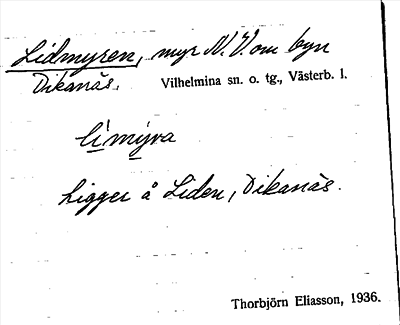 Lidmyren, myr N.V. om byn
Dikanäs. Vilhelmina sn. o. tg., Västerb. l.
li mýra
Ligger å Liden, Dikanäs.
Thorbjörn Eliasson, 1936.